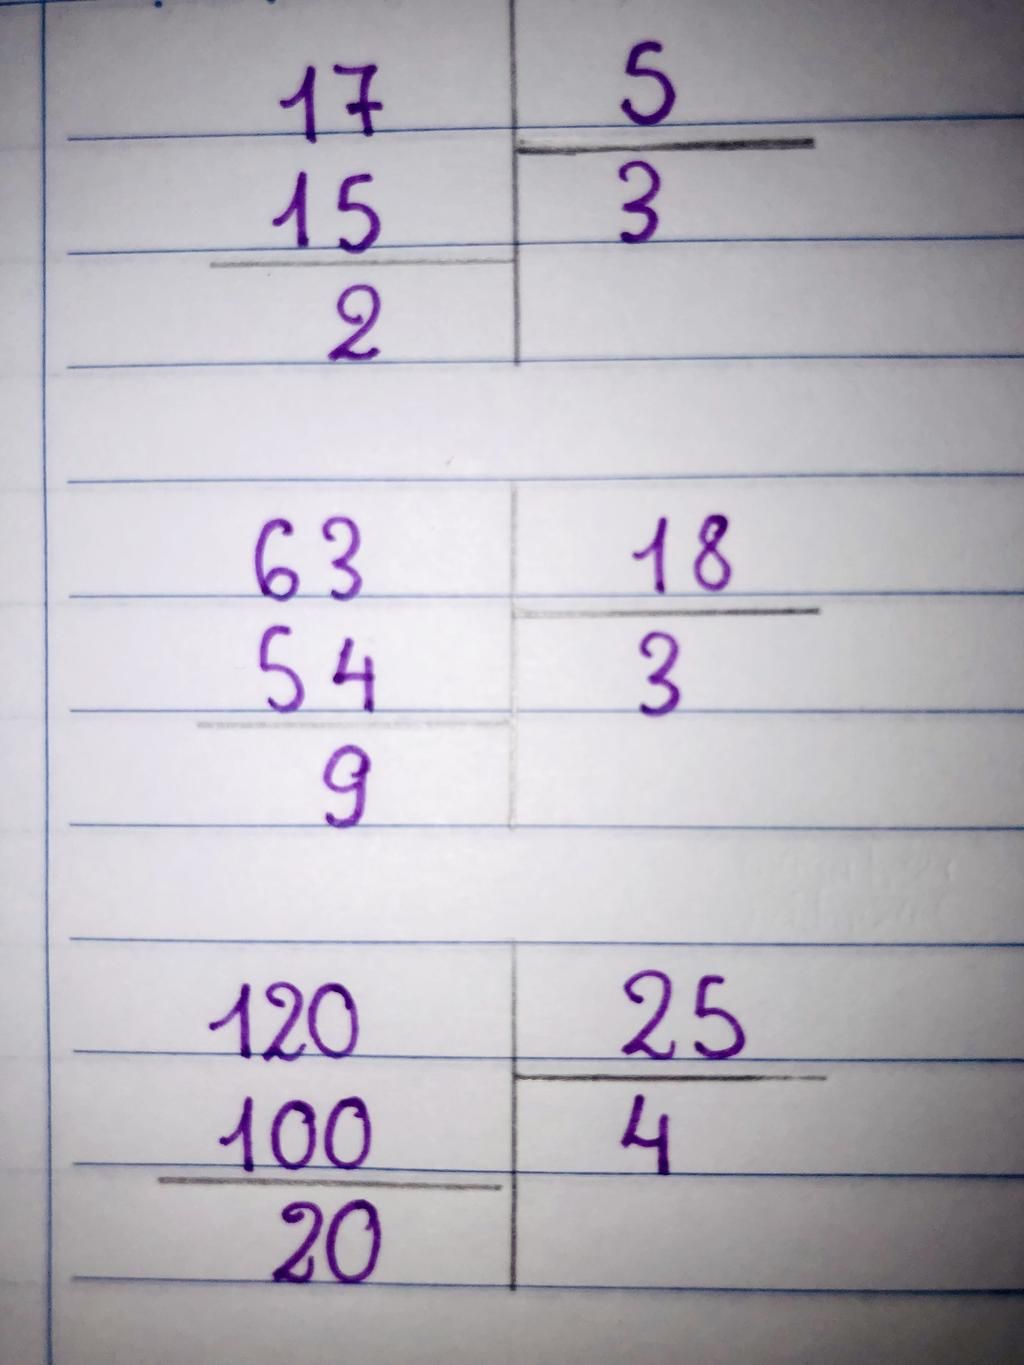 17 5
15 3
2
63 18
54 3
9
120 25
100 4
20